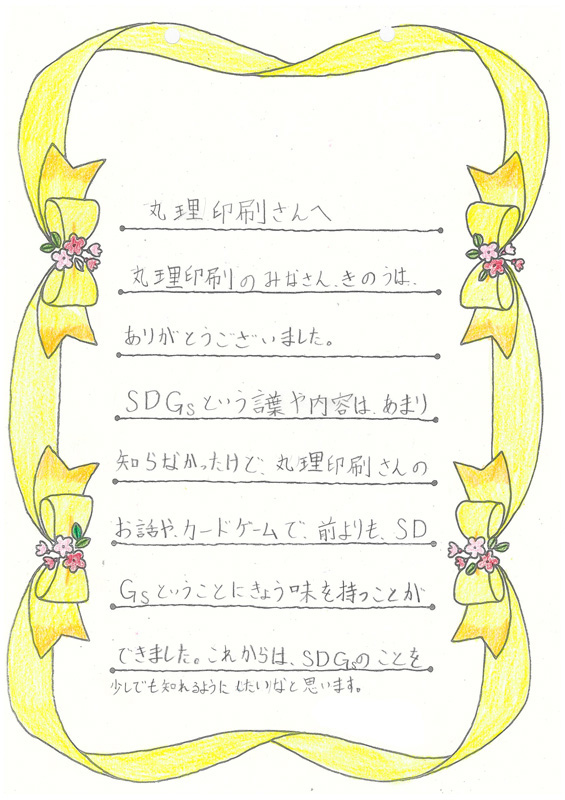 丸理印刷さんへ
丸理印刷のみなさん、きのうは、
ありがとうございました。
SDGsという言葉や内容は、あまり
知らなかったけど、丸理印刷さんの
お話や、カードゲームで、前よりも、SD
Gsということにきょう味を持つことが
できました。これからは、SDGsのことを
少しでも知れるようにしたいなと思います。